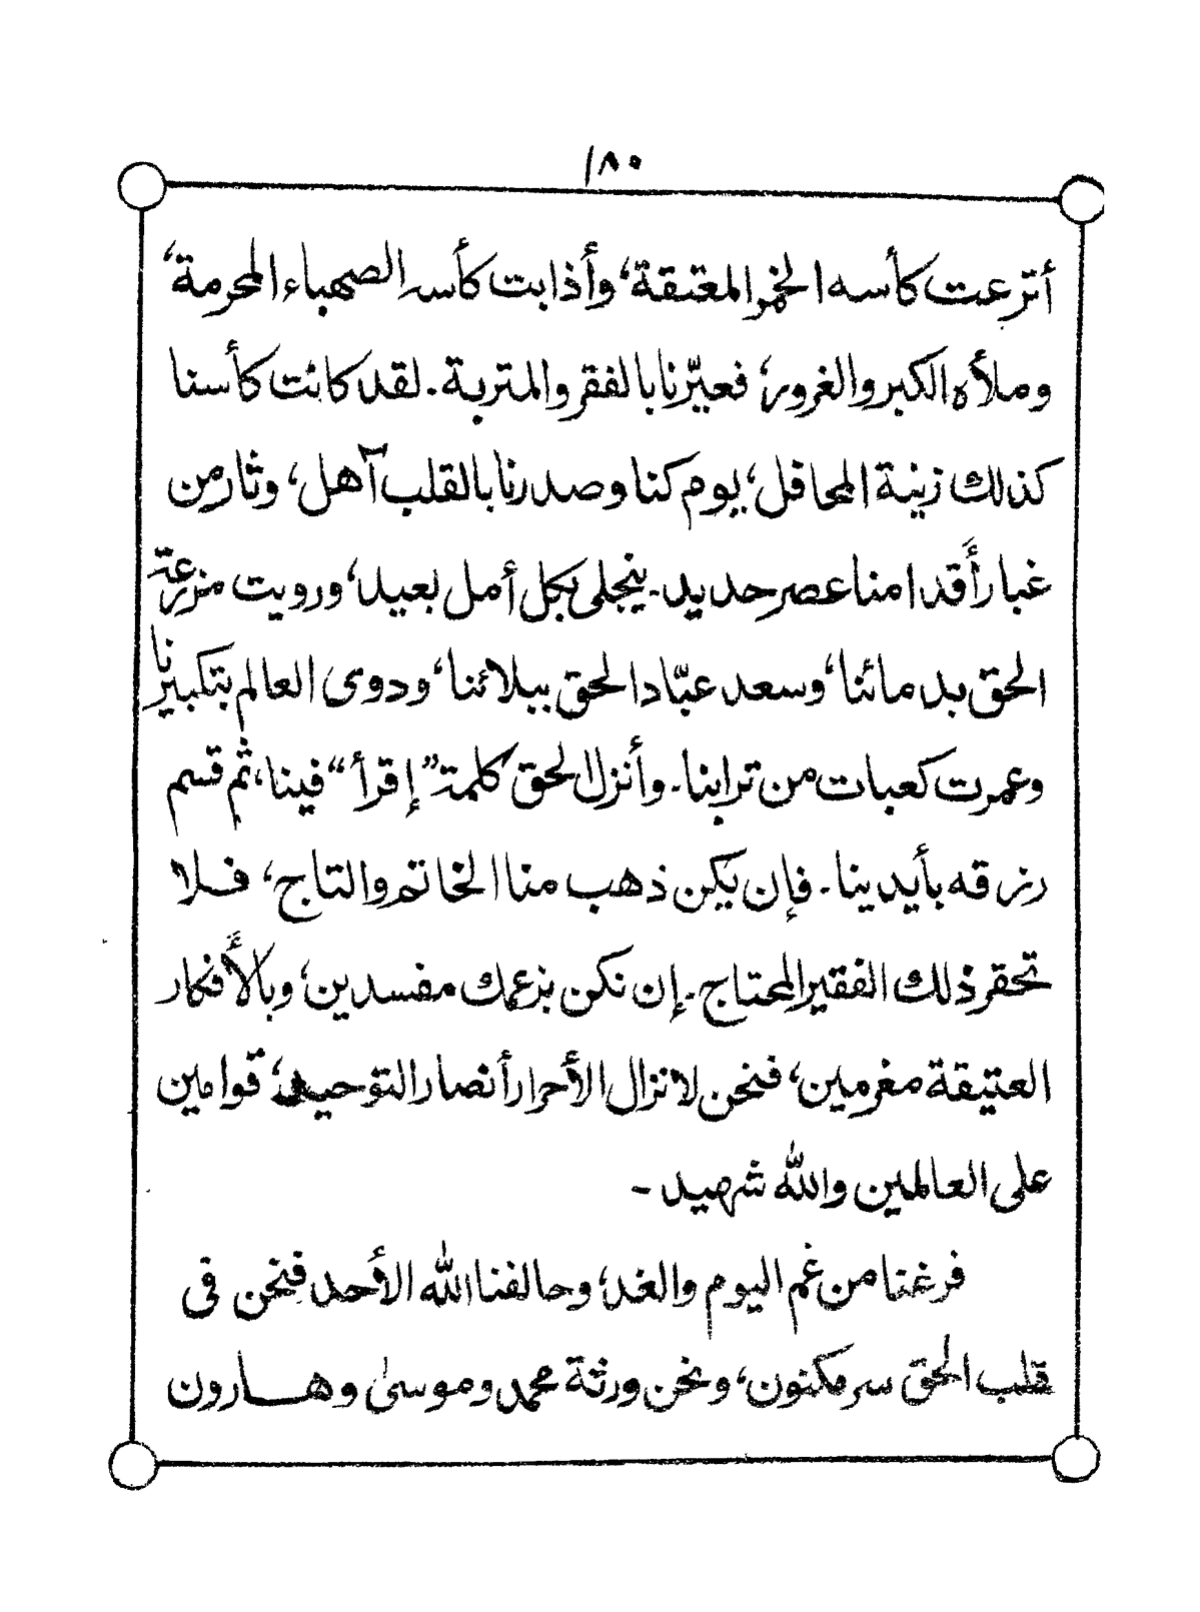 ١٨٠
أترعت كأسه الخمر المعتقة، وأذابت كأسه الصهباء المحرمة،
وملأه الكبر والغرور، فعيّرنا بالفقر والمتربة. لقد كانت كأسنا
كذلك زينة المحافل، يوم كنا وصدرنا بالقلب آهل، وثار من
غبار أَقدامنا عصر حديد. ينجلى بكل أمل بعيد، ورويت مزرعة
الحق بدمائنا، وسعد عبّاد الحق ببلائنا، ودوى العالم بتكبيرنا
وعمرت كعبات من ترابنا. وأنزل الحق كلمة "إقرأ" فينا، ثم قسم
رزقه بأيدينا. فإن يكن ذهب منا الخاتم والتاج، فلا
تحقر ذلك الفقير المحتاج. إن نكن بزعمك مفسدين، وبالأَفكار
العتيقة مغرمين، فنحن لا نزال الأحرار أنصار التوحيد، قوامين
على العالمين والله شهيد -
فرغنا من غم اليوم والغد، وحالفنا الله الأحد فنحن فى
قلب الحق سر مكنون، ونحن ورثة محمد وموسىٰ وهارون